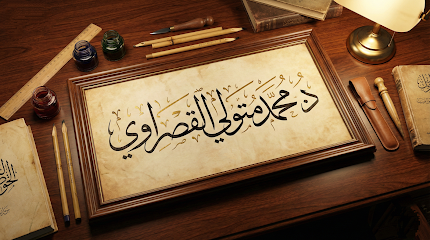 د محمد متولي القصراوي